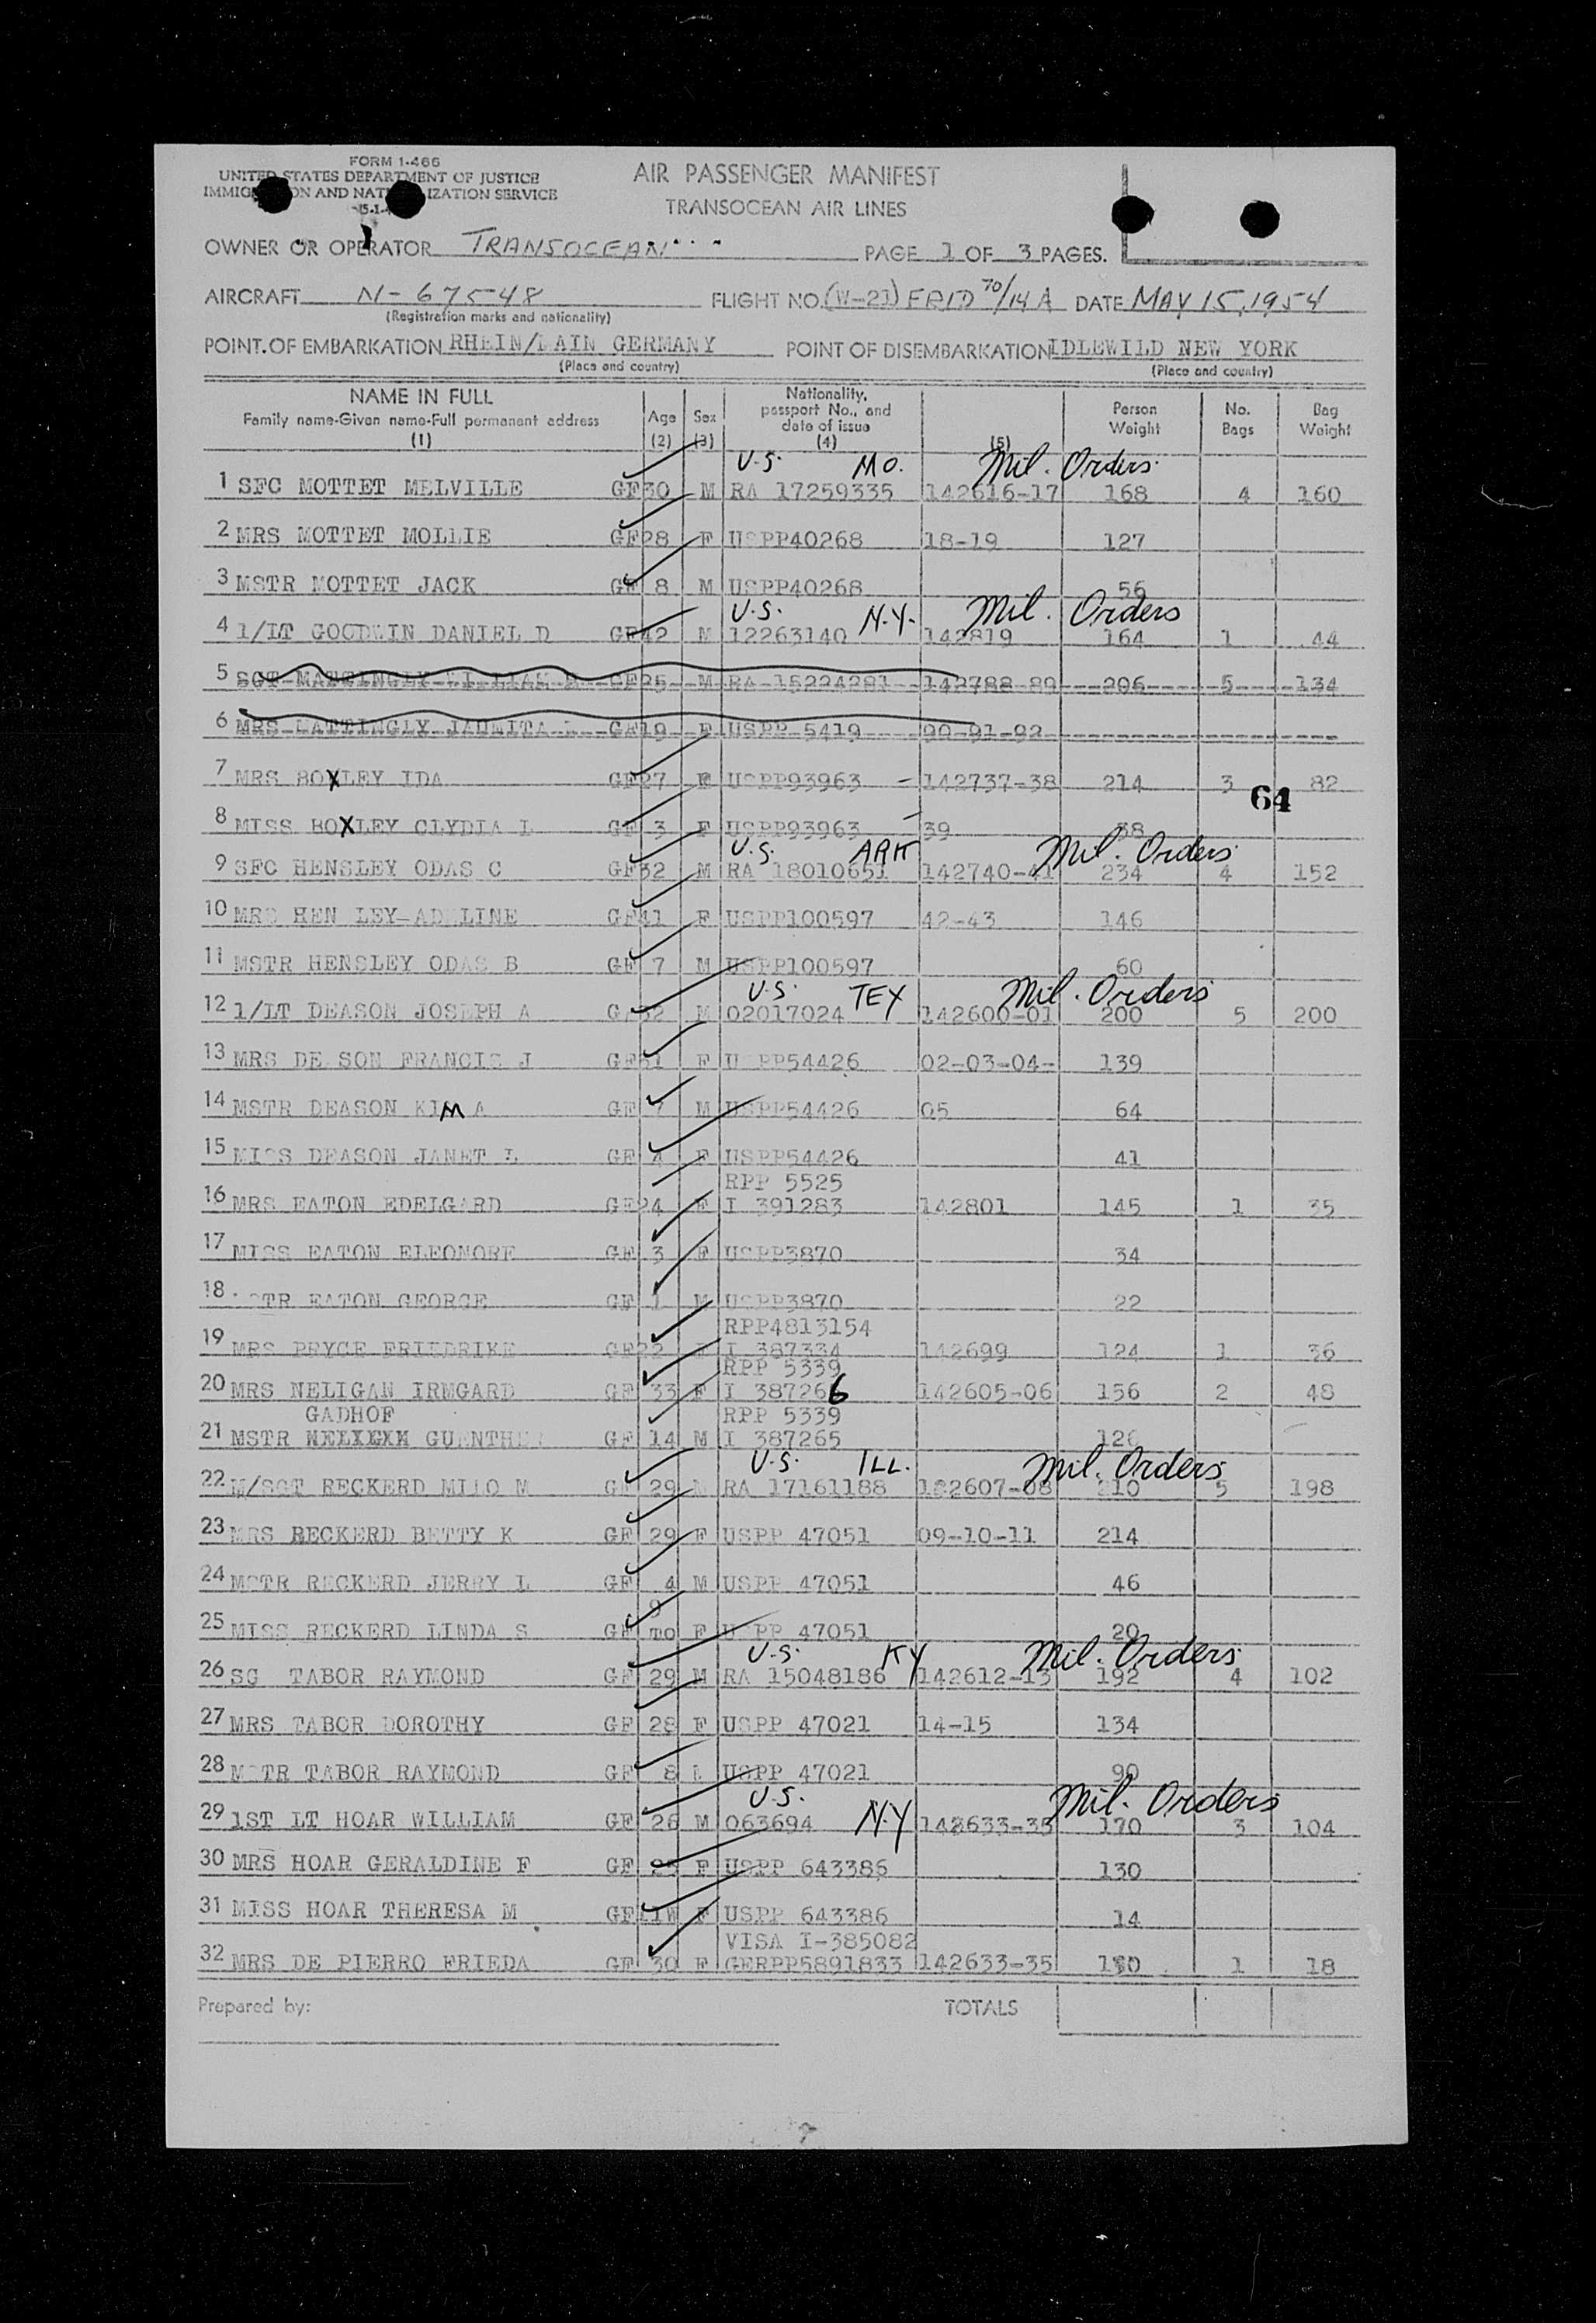 FORM 1-466
UNITED STATES DEPARTMENT OF JUSTICE
IMMIG ON AND NAT IZATION SERVICE
AIR PASSENGER MANIFEST
TRANSOCEAN AIR LINES
OWNER OR OPERATOR TRANSOCEAN PAGE 1 OF 3 PAGES.
AIRCRAFT N-67548 FLIGHT NO. (W-21) FRID 70/14A DATE MAY 15, 1954
(Registration marks and nationality)
POINT OF EMBARKATION RHEIN/MAIN GERMANY POINT OF DISEMBARKATION IDLEWILD NEW YORK
(Place and country) (Place and country)
NAME IN FULL Family name-Given name-Full permanent address (1) Age (2) Sex (3) Nationality, passport No., and date of issue (4) (5) Person Weight No. Bags Bag Weight
U.S. MO. Mil. Orders
1 SFC MOTTET MELVILLE GF 30 M RA 17259335 142616-17 168 4 160
2 MRS MOTTET MOLLIE GF 28 F USPP40268 18-19 127
3 MSTR MOTTET JACK GF 8 M USPP40268 56
U.S. N.Y. Mil. Orders
4 1/LT GOODWIN DANIEL D GF 42 M 12263140 142819 164 1 44
5 SGT MATTINGLY WILLIAM GF 25 M RA 15224281 142788-89 206 5 134
6 MRS MATTINGLY JAUNITA GF 19 F USPP 5419 90-91-92
7 MRS BOXLEY IDA GF 27 F USPP93963 - 142737-38 214 3 82
64
8 MISS BOXLEY CLYDIA L GF 3 F USPP93963 - 39 38
U.S. ARK Mil. Orders
9 SFC HENSLEY ODAS C GF 32 M RA 18010651 142740-41 234 4 152
10 MRS HEN LEY-ADELINE GF 41 F USPP100597 42-43 146
11 MSTR HENSLEY ODAS B GF 7 M USPP100597 60
U.S. TEX Mil. Orders
12 1/LT DEASON JOSEPH A GF 32 M 02017024 142600-01 200 5 200
13 MRS DE SON FRANCIS J GF 31 F U PP54426 02-03-04- 139
14 MSTR DEASON KIM A GF 7 M USPP54426 05 64
15 MISS DEASON JANET L GF 4 F USPP54426 41
RPP 5525
16 MRS EATON EDELGARD GF 24 F I 391283 142801 145 1 35
17 MISS EATON ELEONORE GF 3 F USPP3870 34
18 STR EATON GEORGE GF 1 M USPP3870 22
RPP4813154
19 MRS PRYCE FRIEDRIKE GF 22 F I 387334 142699 124 1 36
RPP 5339
20 MRS NELIGAN IRMGARD GF 33 F I 387266 142605-06 156 2 48
GADHOF RPP 5339
21 MSTR NELIGAN GUENTHE GF 14 M I 387265 126
U.S. ILL. Mil. Orders
22 M/SGT RECKERD MILO M GF 29 M RA 17161188 182607-08 210 5 198
23 MRS RECKERD BETTY K GF 29 F USPP 47051 09-10-11 214
24 MSTR RECKERD JERRY L GF 4 M USPP 47051 46
9
25 MISS RECKERD LINDA S GF mo F U PP 47051 20
U.S. KY Mil. Orders
26 SG TABOR RAYMOND GF 29 M RA 15048186 142612-13 192 4 102
27 MRS TABOR DOROTHY GF 28 F USPP 47021 14-15 134
28 MSTR TABOR RAYMOND GF 8 M USPP 47021 90
U.S. N.Y Mil. Orders
29 1ST LT HOAR WILLIAM GF 26 M 063694 142633-35 170 3 104
30 MRS HOAR GERALDINE F GF 25 F USPP 643386 130
31 MISS HOAR THERESA M GF 11W F USPP 643386 14
VISA I-385082
32 MRS DE PIERRO FRIEDA GF 30 F GERPP5891833 142633-35 130 1 18
Prepared by: TOTALS